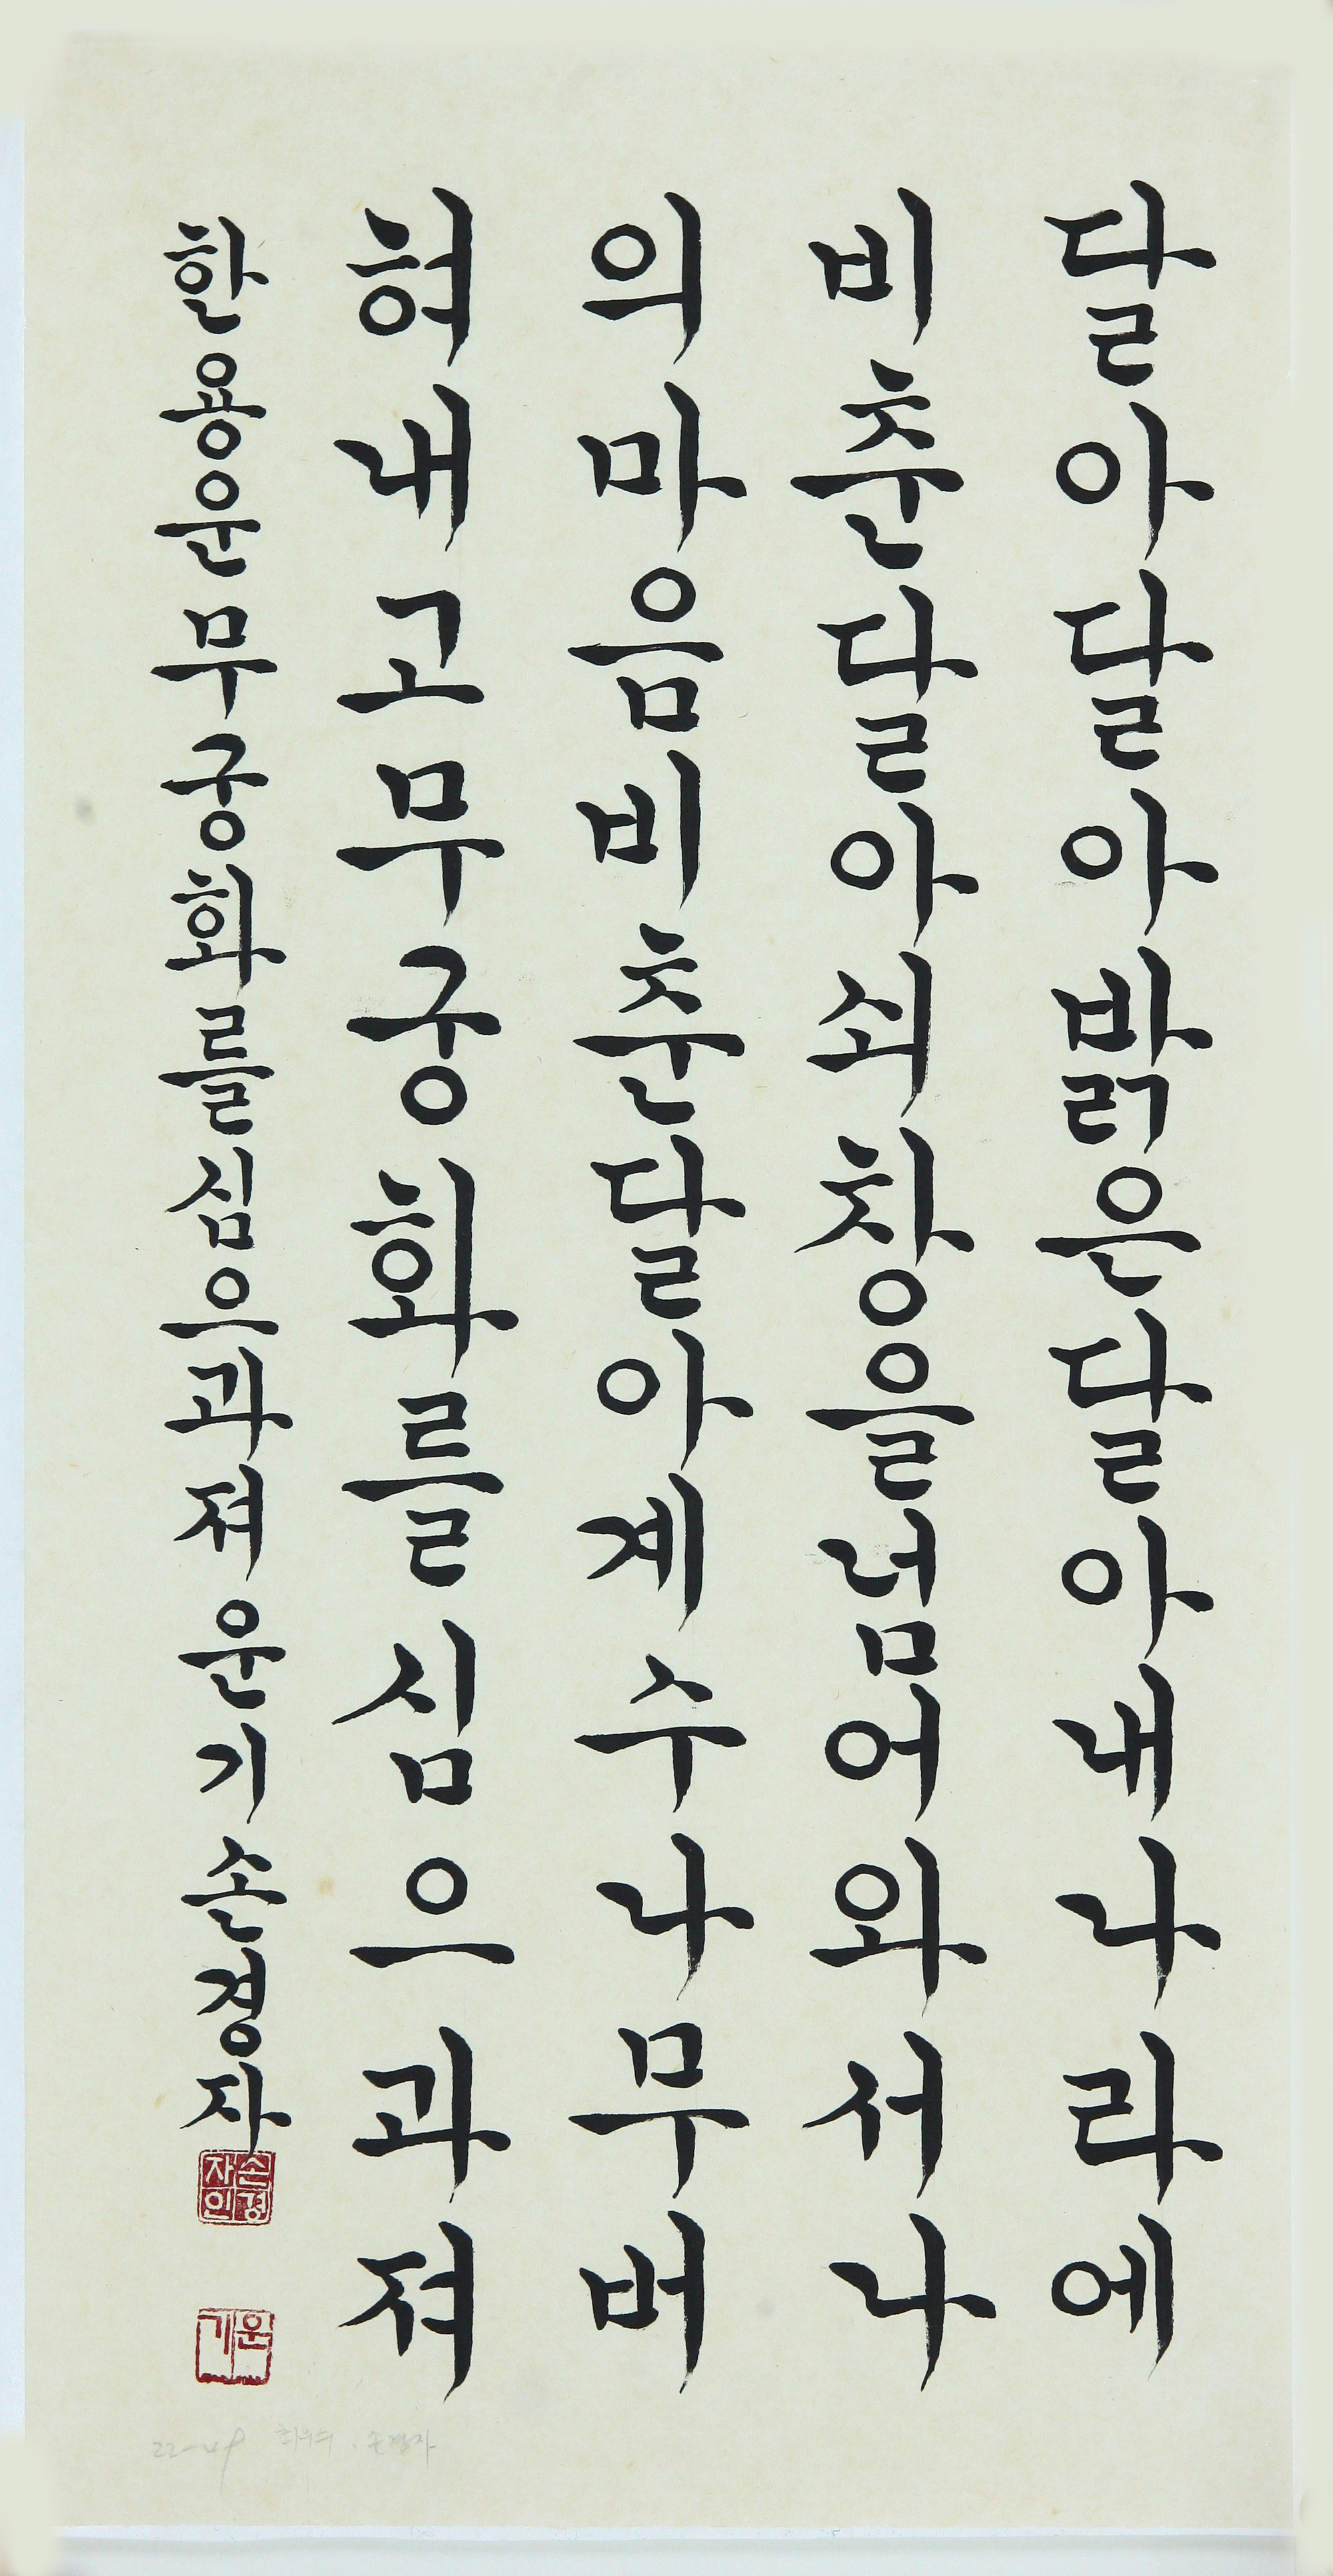 달아달아밝은달아내나라에
비춘달아쇠창을넘어와서나
의마음비춘달아계수나무버
혀내고무궁화를심으과져
한용운무궁화를심으과져운기손경자
손경자인
운기
22-49 손경자